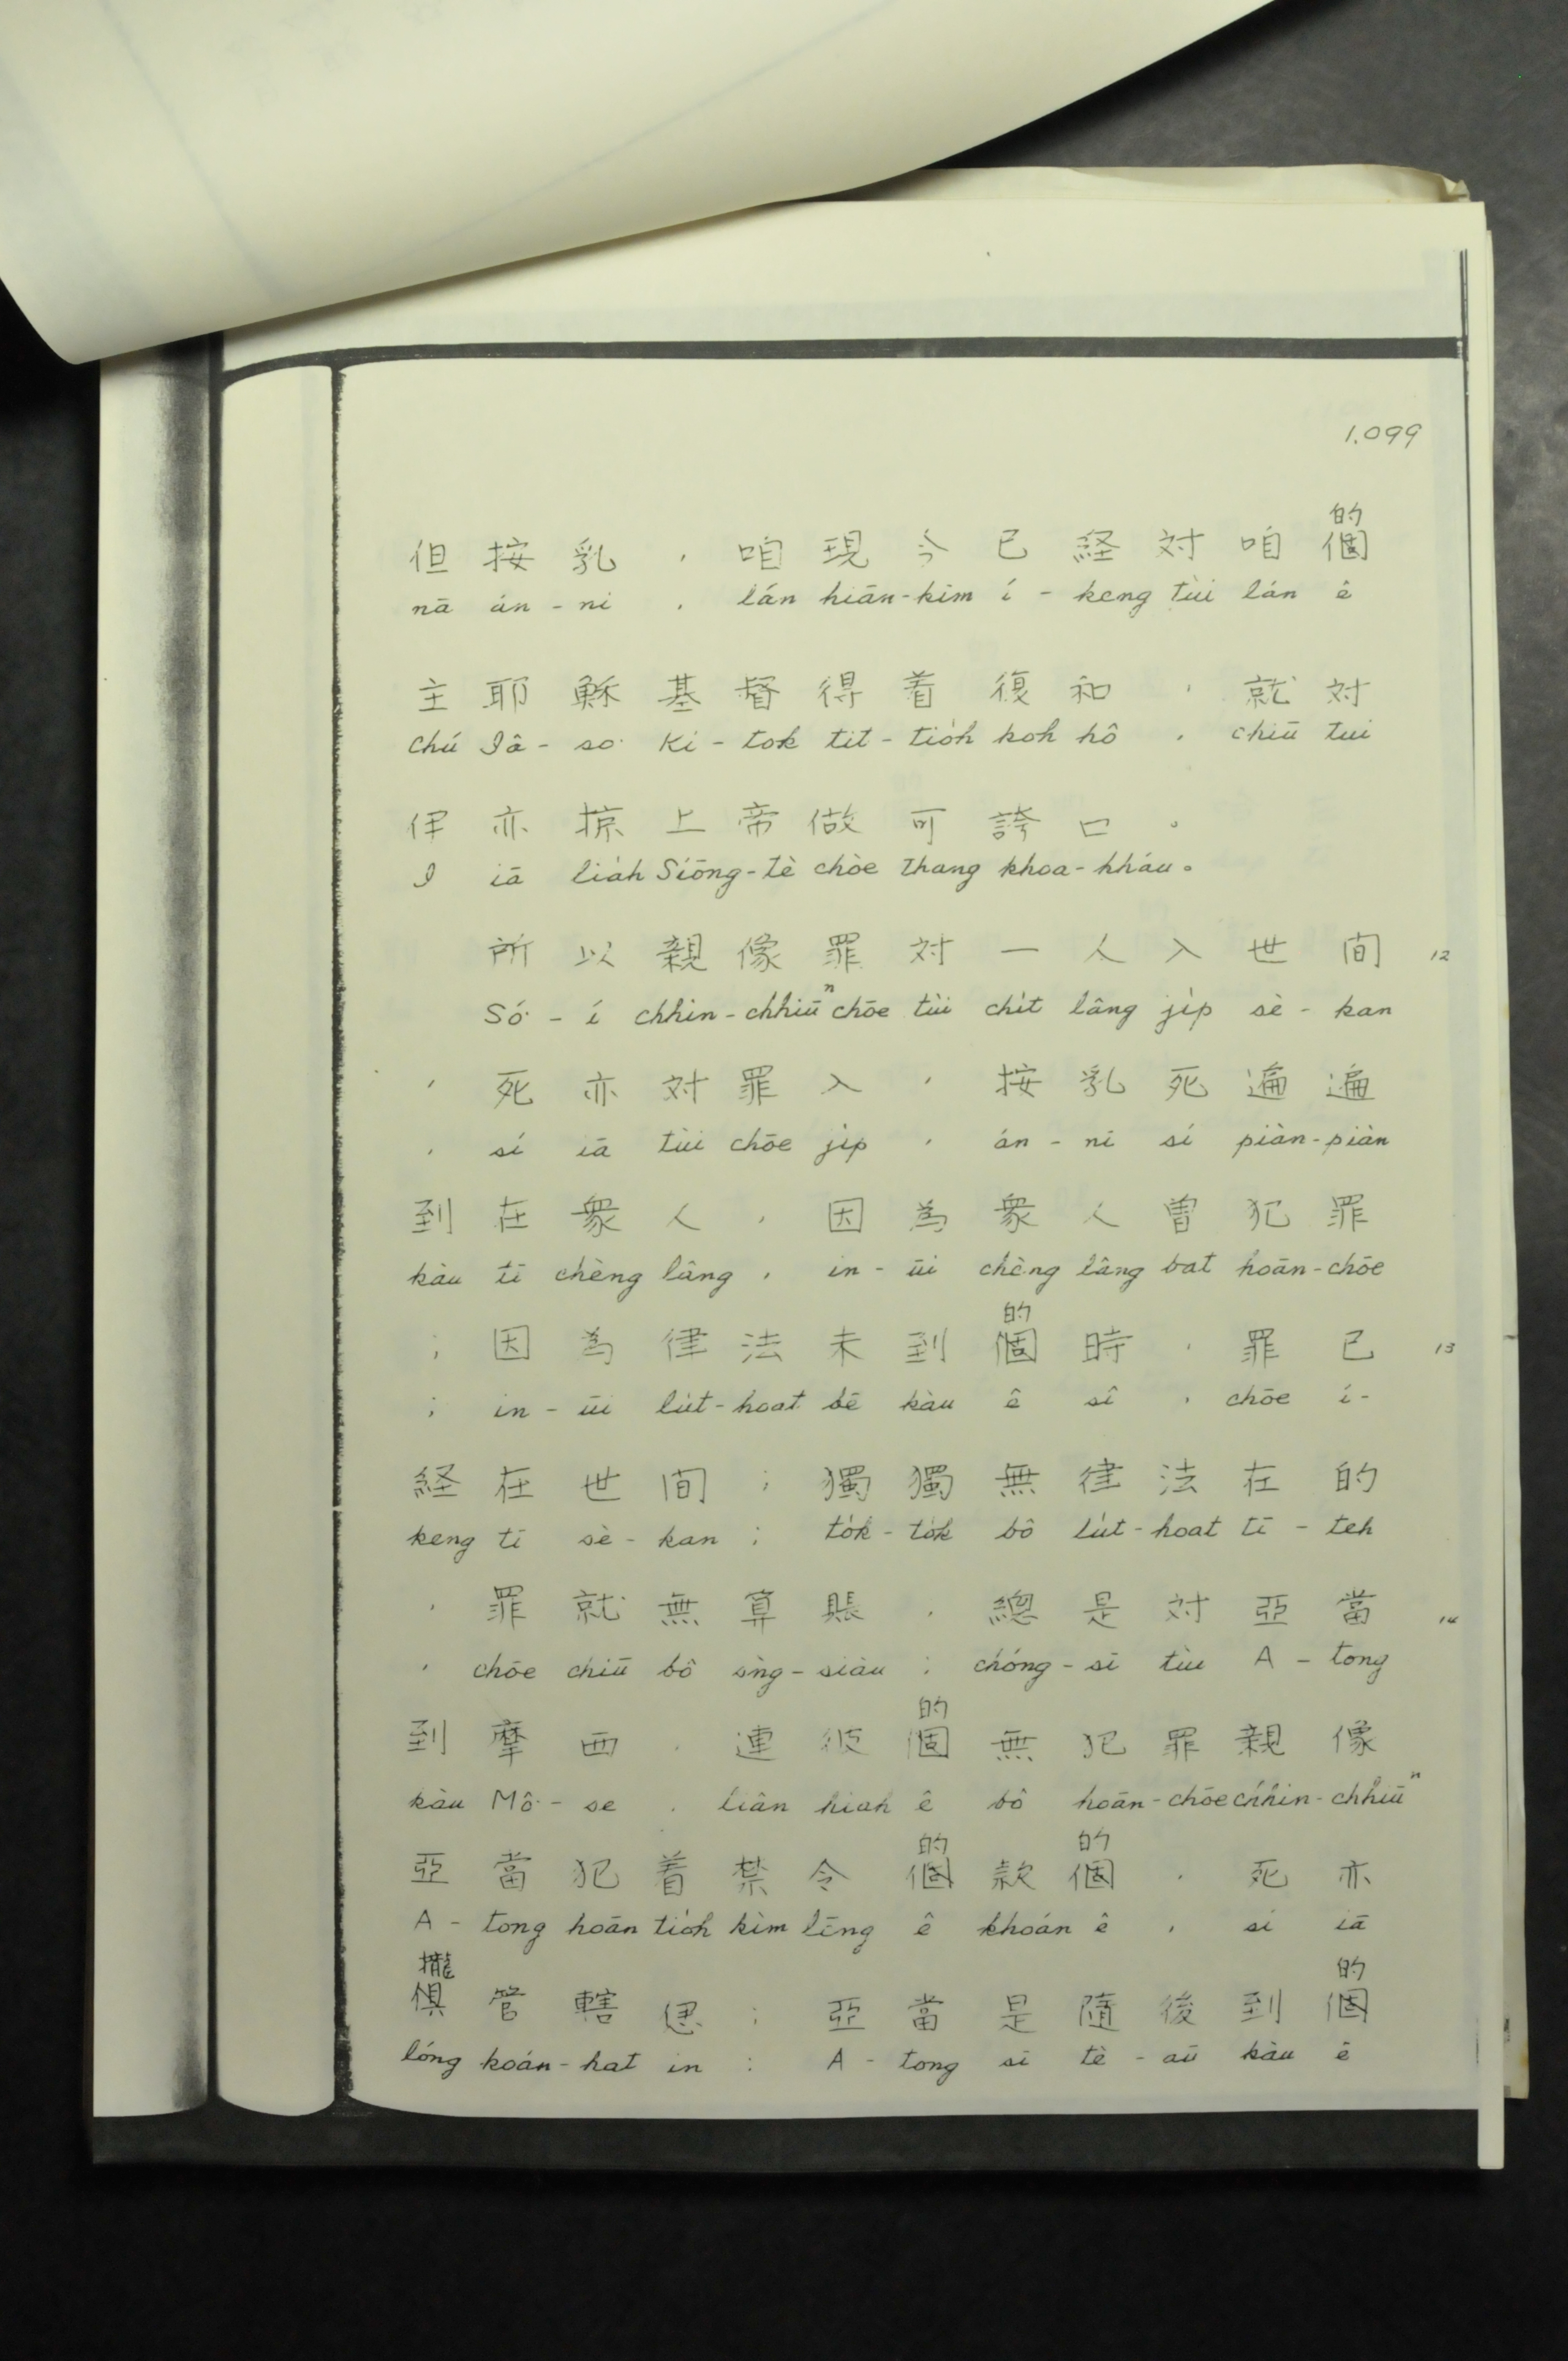 1.099
的
但按乳,咱現今已経対咱個
nā án-ni, lán hiān-kim í-keng tùi lán ê
主耶穌基督得着復和,就対
Chú Iâ-so· Ki-tok tit-tio̍h koh hô, chiū tui
伊亦掠上帝做可誇口。
I iā lia̍h Siōng-tè chòe thang khoa-kháu。
所以親像罪対一人入世间 12
Só·-í chhin-chhiūⁿ chōe tùi chi̍t lâng ji̍p sè-kan
,死亦対罪入,按乳死遍遍
, sí iā tùi chōe ji̍p, án-ni sí piàn-piàn
到在衆人,因為衆人曽犯罪
kàu tī chèng lâng, in-ūi chèng lâng bat hoān-chōe
的
;因為律法未到個時,罪已 13
; in-ūi lu̍t-hoat bē kàu ê sî, chōe í-
経在世间;獨獨無律法在的
keng tī sè-kan; to̍k-to̍k bô lu̍t-hoat tī-teh
,罪就無算賬,總是対亞當 14
, chōe chiū bô sǹg-siàu; chóng-sī tùi A-tong
的
到摩西,連彼個無犯罪親像
kàu Mô·-se, liân hiah ê bô hoān-chōe chhin-chhiūⁿ
的 的
亞當犯着禁令個款個,死亦
A-tong hoān tio̍h kìm lēng ê khoán ê, sí iā
攏 的
俱管轄𪜶;亞當是隨後到個
lóng koán-hat in: A-tong sī tè-aū kàu ê